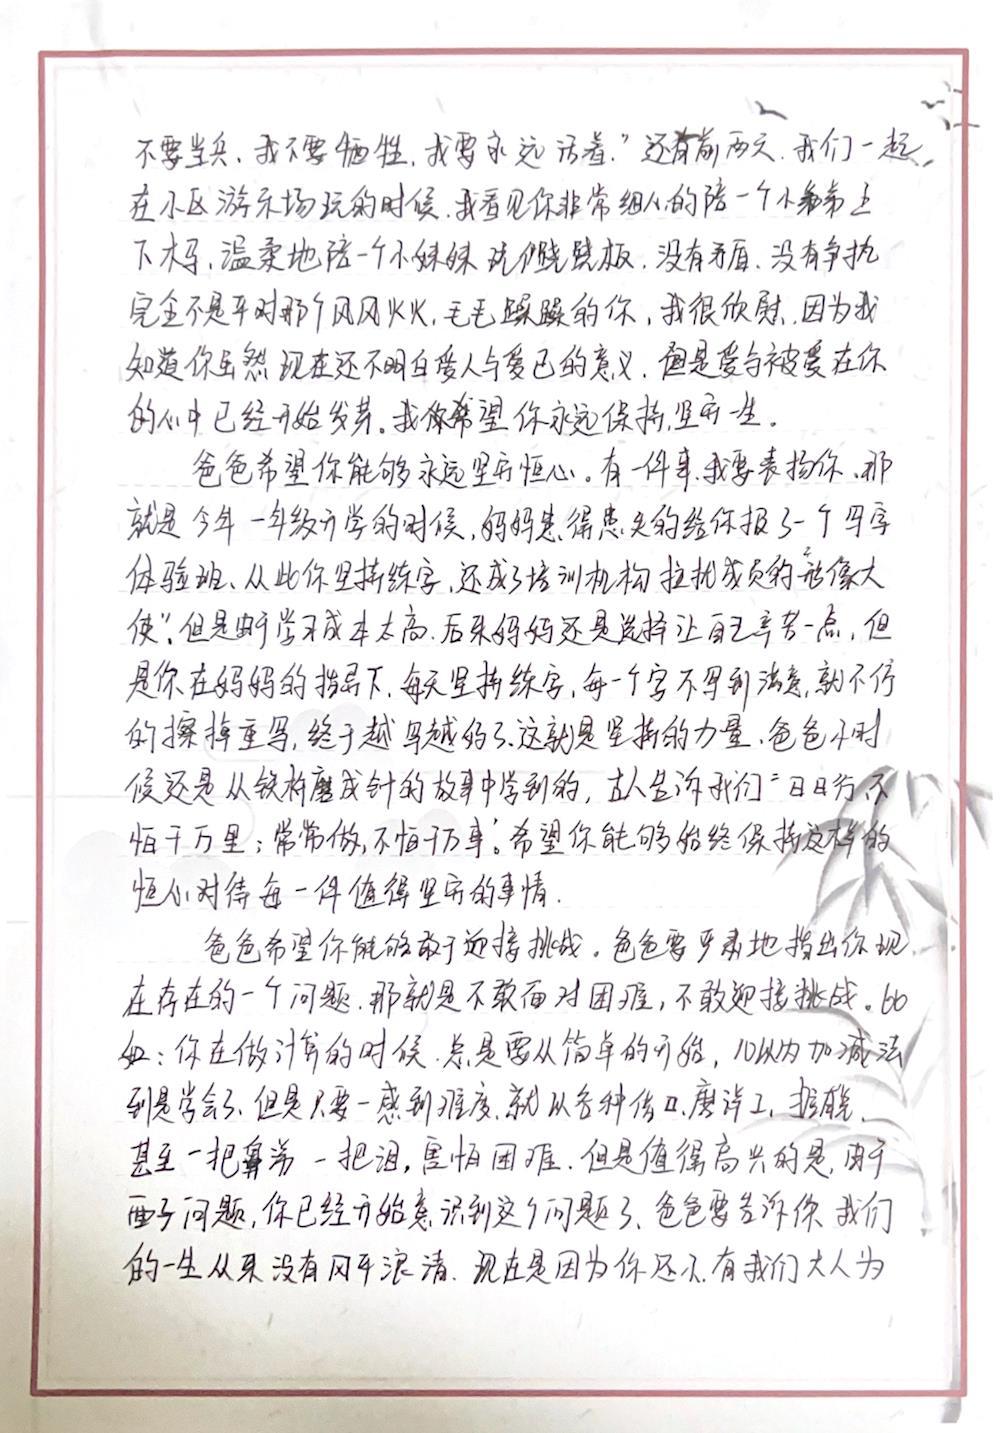 不要当兵、我不要牺牲,我要永远活着."还有前两天.我们一起
在小区游乐场玩的时候.我看见你非常细心的陪一个小弟弟上
下木马、温柔地陪一个小妹妹玩跷跷板.没有矛盾.没有争执
完全不是平时那个风风火火,毛毛躁躁的你,我很欣慰.因为我
知道你虽然现在还不明白爱人与爱己的意义.但是爱与被爱在你
的心中已经开始发芽。我希望你永远保持,坚守一生。
爸爸希望你能够永远坚守恒心。有一件事.我要表扬你、那
就是今年一年级开学的时候,妈妈患得患失的给你报了一个写字
体验班、从此你坚持练字,还成了培训机构拉扰成员的"形像大
使".但是由于学习成本太高.后来妈妈还是选择让自己辛苦一点,但
是你在妈妈的指导下.每天坚持练字,每一个字不写到满意,就不停
的擦掉重写,终于越写越好了、这就是坚持的力量.爸爸小时
候还是从铁杵磨成针的故事中学到的,古人告诉我们"日日行,不
怕千万里;常常做,不怕千万事".希望你能够始终保持这样的
恒心对待每一件值得坚守的事情.
爸爸希望你能够敢于迎接挑战。爸爸要严肃地指出你现
在存在的一个问题.那就是不敢面对困难,不敢迎接挑战。比
如:你在做计算的时候.总是要从简单的开始,10以内加减法
到是学会了、但是只要一感到难度、就从各种借口,磨洋工,
甚至一把鼻涕一把泪,害怕困难.但是值得高兴的是,由于
问题,你已经开始意识到这个问题了、爸爸要告诉你、我们
的一生从来没有风平浪清.现在是因为你还小.有我们大人为